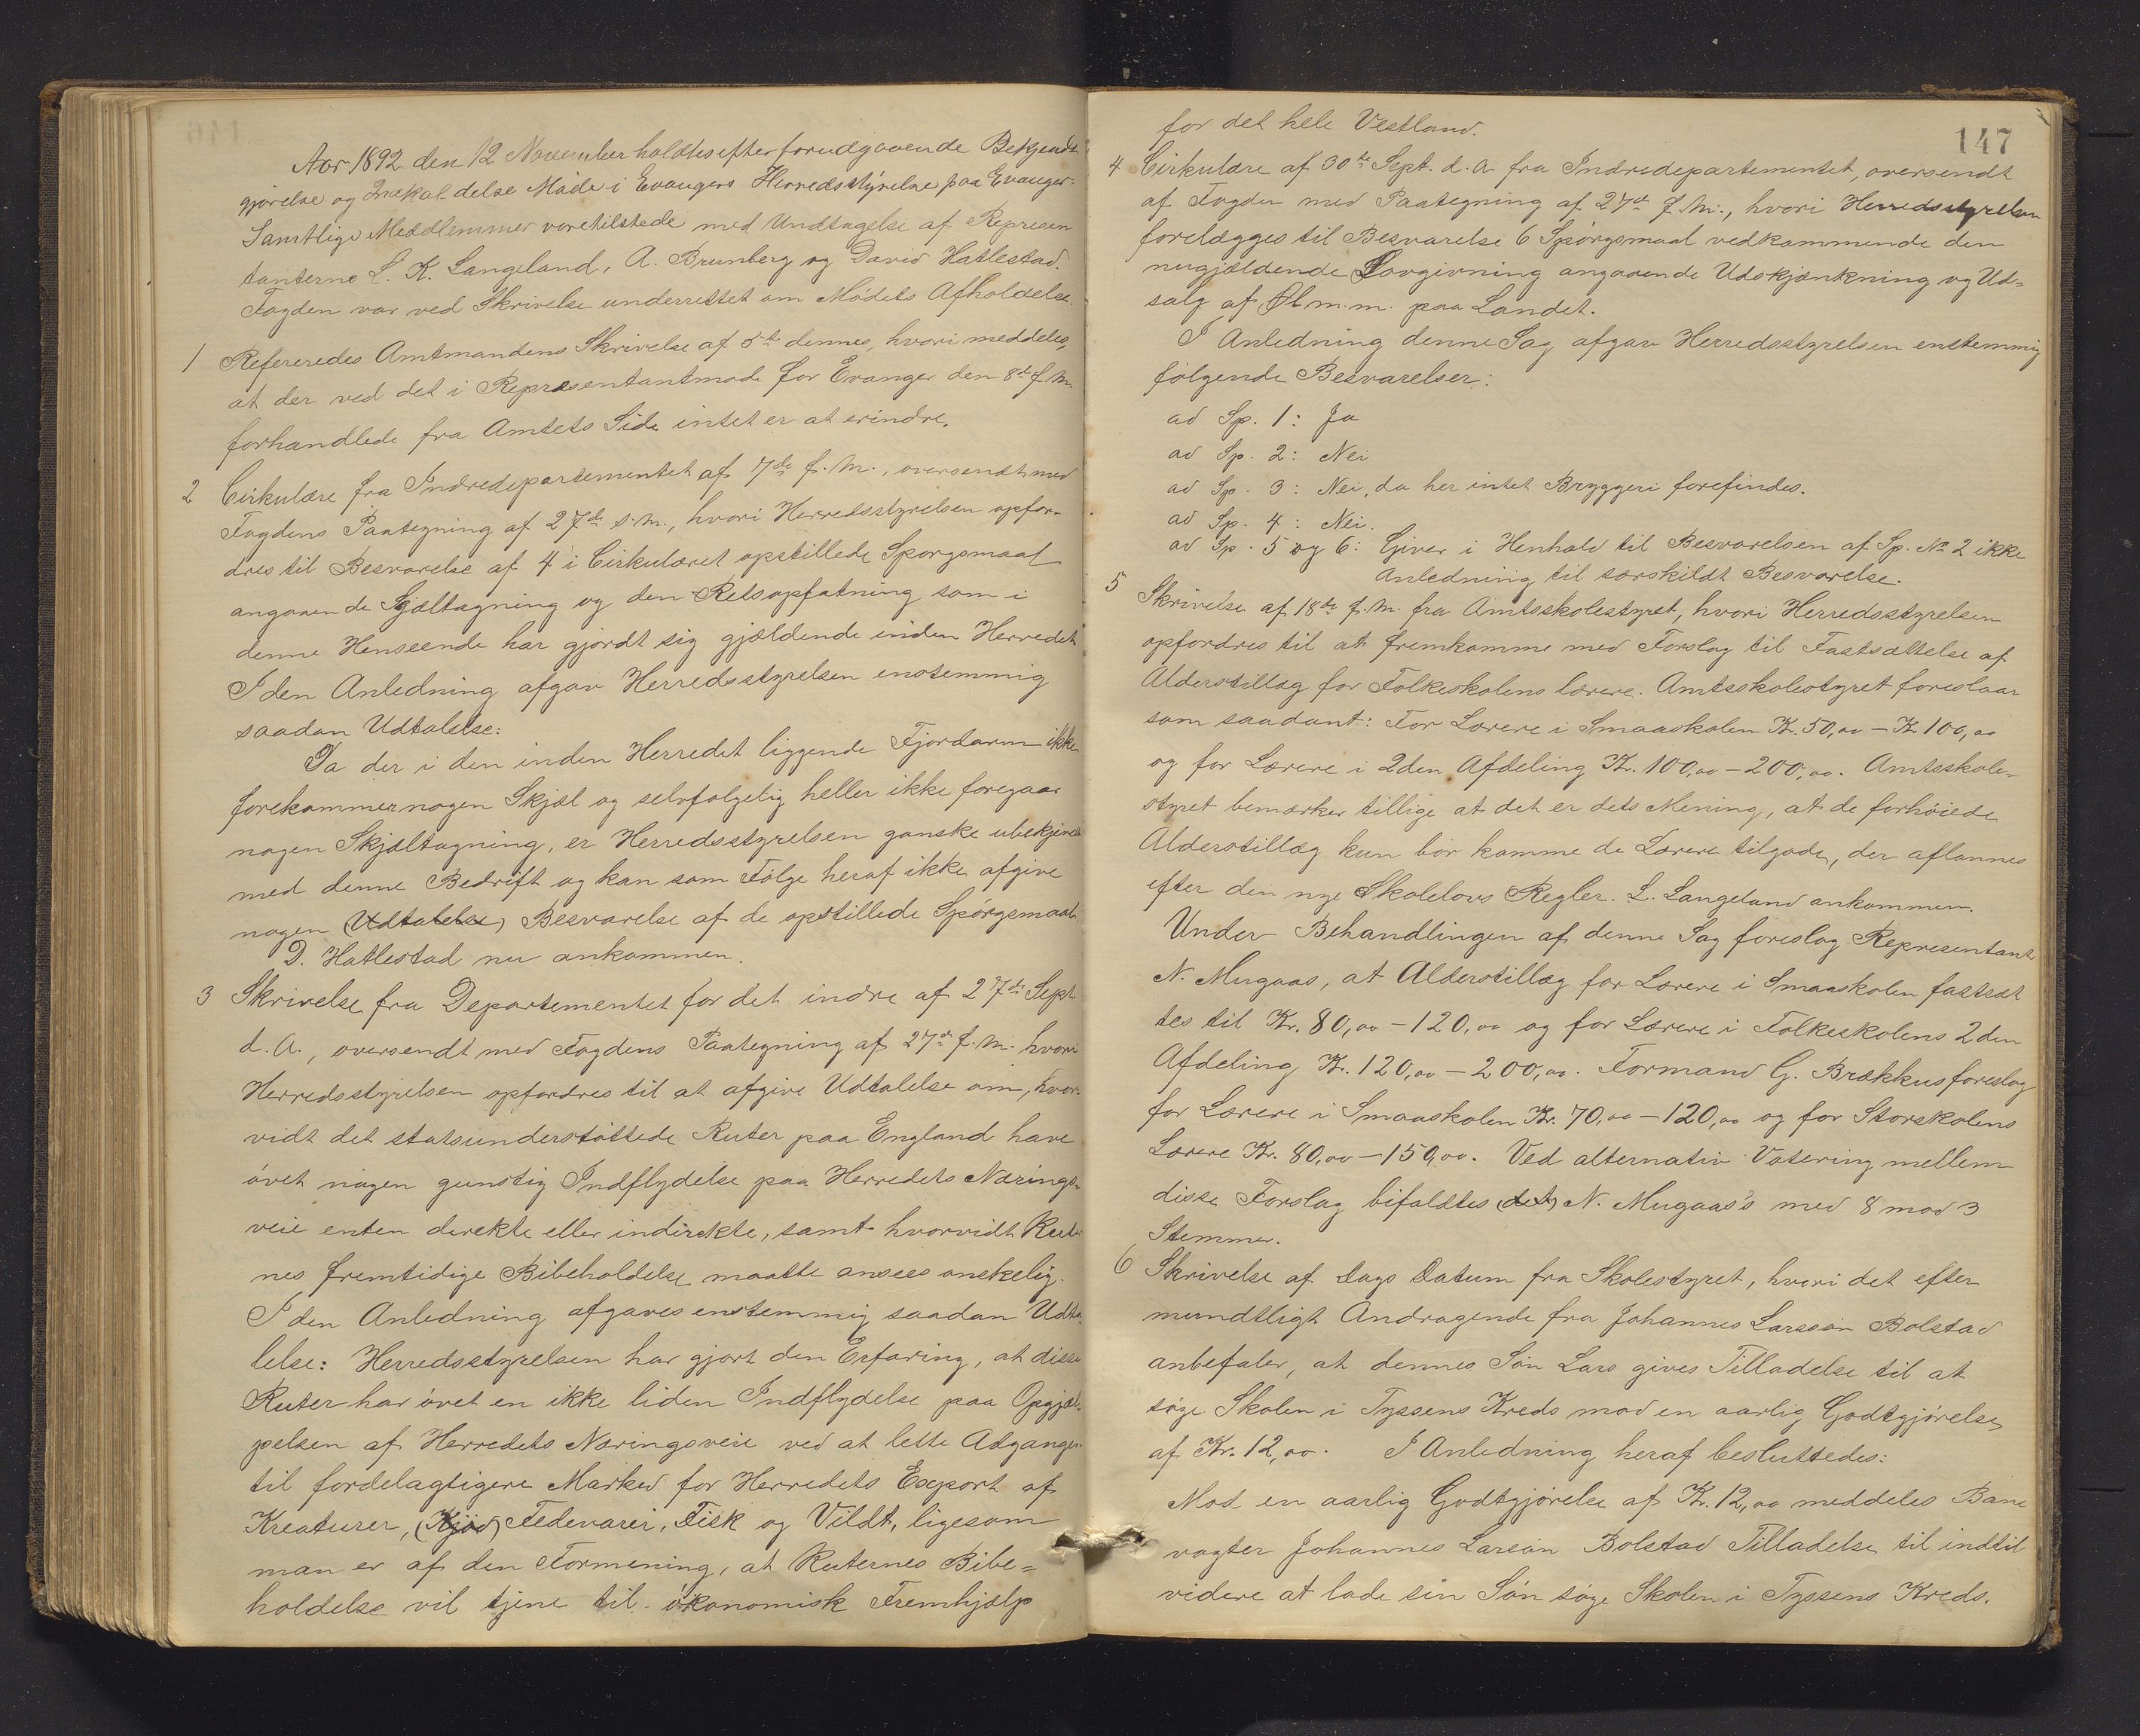 Aar 1892 den 12 November holdtes efter forudgaaende Bekjendt
gjørelse og Indkaldelse Møde i Evangers Herredsstyrelse paa Evanger.
Samtlige Meddlemmer vare tilstede med Undtagelse af Represen
tanterne L. K. Langeland, A. Brunberg og David Hatlestad.
Fogden var ved Skrivelse underrettet om Mødets Afholdelse.
1 Refereredes Amtmandens Skrivelse af 5te dennes, hvori meddeles,
at der ved det i Representantmøde for Evanger den 8de f. M.
forhandlede fra Amtets Side intet er at erindre.
2 Cirkulære fra Indredepartementet af 7de f. M., oversendt med
Fogdens Paategning af 27de s. M., hvori Herredsstyrelsen opfor-
dres til Besvarelse af 4 i Cirkulæret opstillede Spørgsmaal
angaaende Skjæltagning og den Retsopfatning som i
denne Henseende har gjordt sig gjældende inden Herredet
I den Anledning afgav Herredsstyrelsen enstemmig
saadan Udtalelse:
Da der i den inden Herredet liggende Fjordarm ikke
forekommer nogen Skjæl og selvfølgelig heller ikke foregaar
nogen Skjæltagning, er Herredsstyrelsen ganske ubekjendt
med denne Bedrift og kan som Følge heraf ikke afgive
nogen (Udtalelse) Besvarelse af de opstillede Spørgsmaal.
D. Hatlestad nu ankommen.
3 Skrivelse fra Departementet for det indre af 27de Sept
d. A., oversendt med Fogdens Paategning af 27de f. M. hvori
Herredsstyrelsen opfordres til at afgive Udtalelse om, hvor-
vidt det statsunderstøttede Ruter paa England have
øvet nogen gunstig Indflydelse paa Herredets Nærings-
veie enten direkte eller indirekte, samt hvorvidt Ruter
nes fremtidige Bibeholdelse maatte ansees ønskelig.
I den Anledning afgaves enstemmig saadan Udta
lelse: Herredsstyrelsen har gjort den Erfaring, at disse
Ruter har øvet en ikke liden Indflydelse paa Opgjæl-
pelsen af Herredets Næringsveie ved at lette Adgangen
til fordelagtigere Marked for Herredets Export af
Kreaturer, (Kjød) Fedevarer, Fisk og Vildt, ligesom
man er af den Formening, at Ruternes Bibe=
holdelse vil tjene til økonomisk Fremhjælp
147
for det hele Vestland.
4 Cirkulære af 30te Sept. d. A. fra Indredepartementet, oversendt
af Fogden med Paategning af 27de f. M., hvori Herredsstyrelsen
forelægges til Besvarelse 6 Spørgsmaal vedkommende den
nugjældende Lovgivning angaaende Udskjænkning og Ud=
salg af Øl m. m. paa Landet.
I Anledning denne Sag afgav Herredsstyrelsen enstemmig
følgende Besvarelser:
ad Sp. 1: Ja
ad Sp. 2: Nei
ad Sp. 3: Nei, da her intet Bryggeri forefindes.
ad Sp. 4: Nei.
ad Sp. 5 og 6: Giver i Henhold til Besvarelsen af Sp. No 2 ikke
Anledning til særskildt Besvarelse.
5 Skrivelse af 18de f. M. fra Amtsskolestyret, hvori Herredsstyrelsen
opfordres til at fremkomme med Forslag til Fastsættelse af
Alderstillæg for Folkeskolens lærere. Amtsskolestyret foreslaar
som saadant: For Lærere i Smaaskolen Kr. 50,00 – Kr 100,00
og for Lærere i 2den Afdeling Kr. 100,00 – 200,00. Amtsskole-
styret bemærker tillige at det er dets Mening, at de forhøiede
Alderstillæg kun bør komme de Lærere tilgode, der aflønnes
efter den nye Skolelovs Regler. L. Langeland ankommen.
Under Behandlingen af denne Sag foreslog Representant
N. Mugaas, at Alderstillæg for Lærere i Smaaskolen fastsæt
tes til Kr. 80,00 – 120,00 og for Lærere i Folkeskolens 2den
Afdeling Kr. 120,00 – 200,00. Formand G. Brækkus foreslog
for Lærere i Smaaskolen Kr. 70,00 – 120,00 og for Storskolens
Lærere Kr. 80,00 – 150,00. Ved alternativ Votering mellem
disse Forslag bifaldtes (det) N. Mugaas's med 8 mod 3
Stemmer.
6 Skrivelse af Dags Datum fra Skolestyret, hvori det efter
mundtligt Andragende fra Johannes Larssøn Bolstad
anbefaler, at dennes Søn Lars gives Tilladelse til at
søge Skolen i Tyssens Kreds mod en aarlig Godtgjørelse
af Kr. 12,00. I Anledning heraf besluttedes:
Mod en aarlig Godtgjørelse af Kr. 12,00 meddeles Bane
vogter Johannes Larsøn Bolstad Tilladelse til indtil
videre at lade sin Søn søge Skolen i Tyssens Kreds.